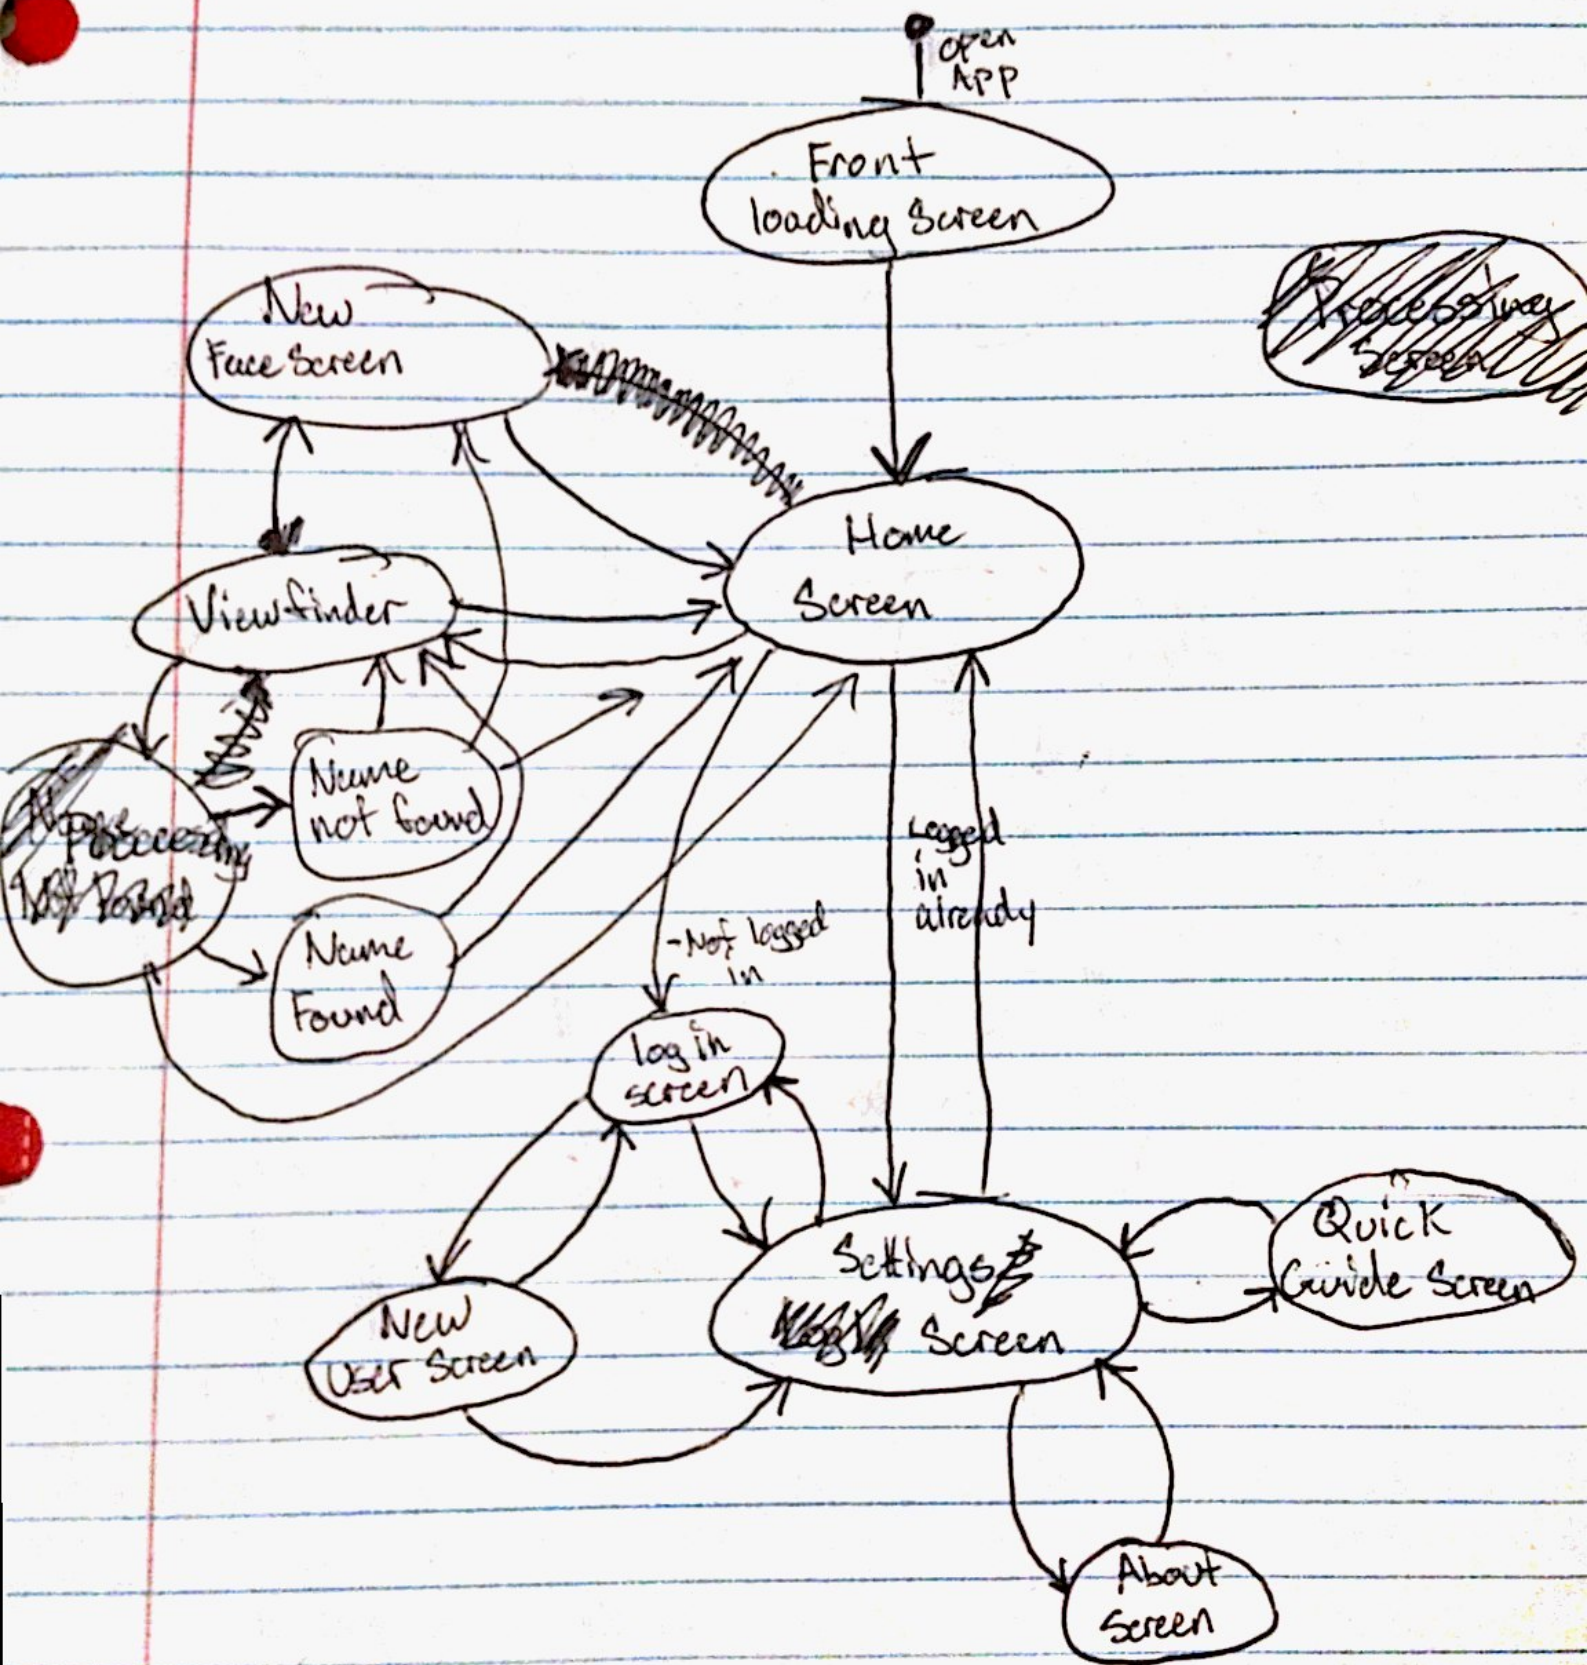 Open
App
Front
loading Screen
New
Face Screen
Processing
Screen
Home
Screen
Viewfinder
Name
not found
Processing
Not Found
Name
Found
Logged
in
already
-Not logged
in
log in
screen
Settings
Screen
Quick
Guide Screen
New
User Screen
About
Screen